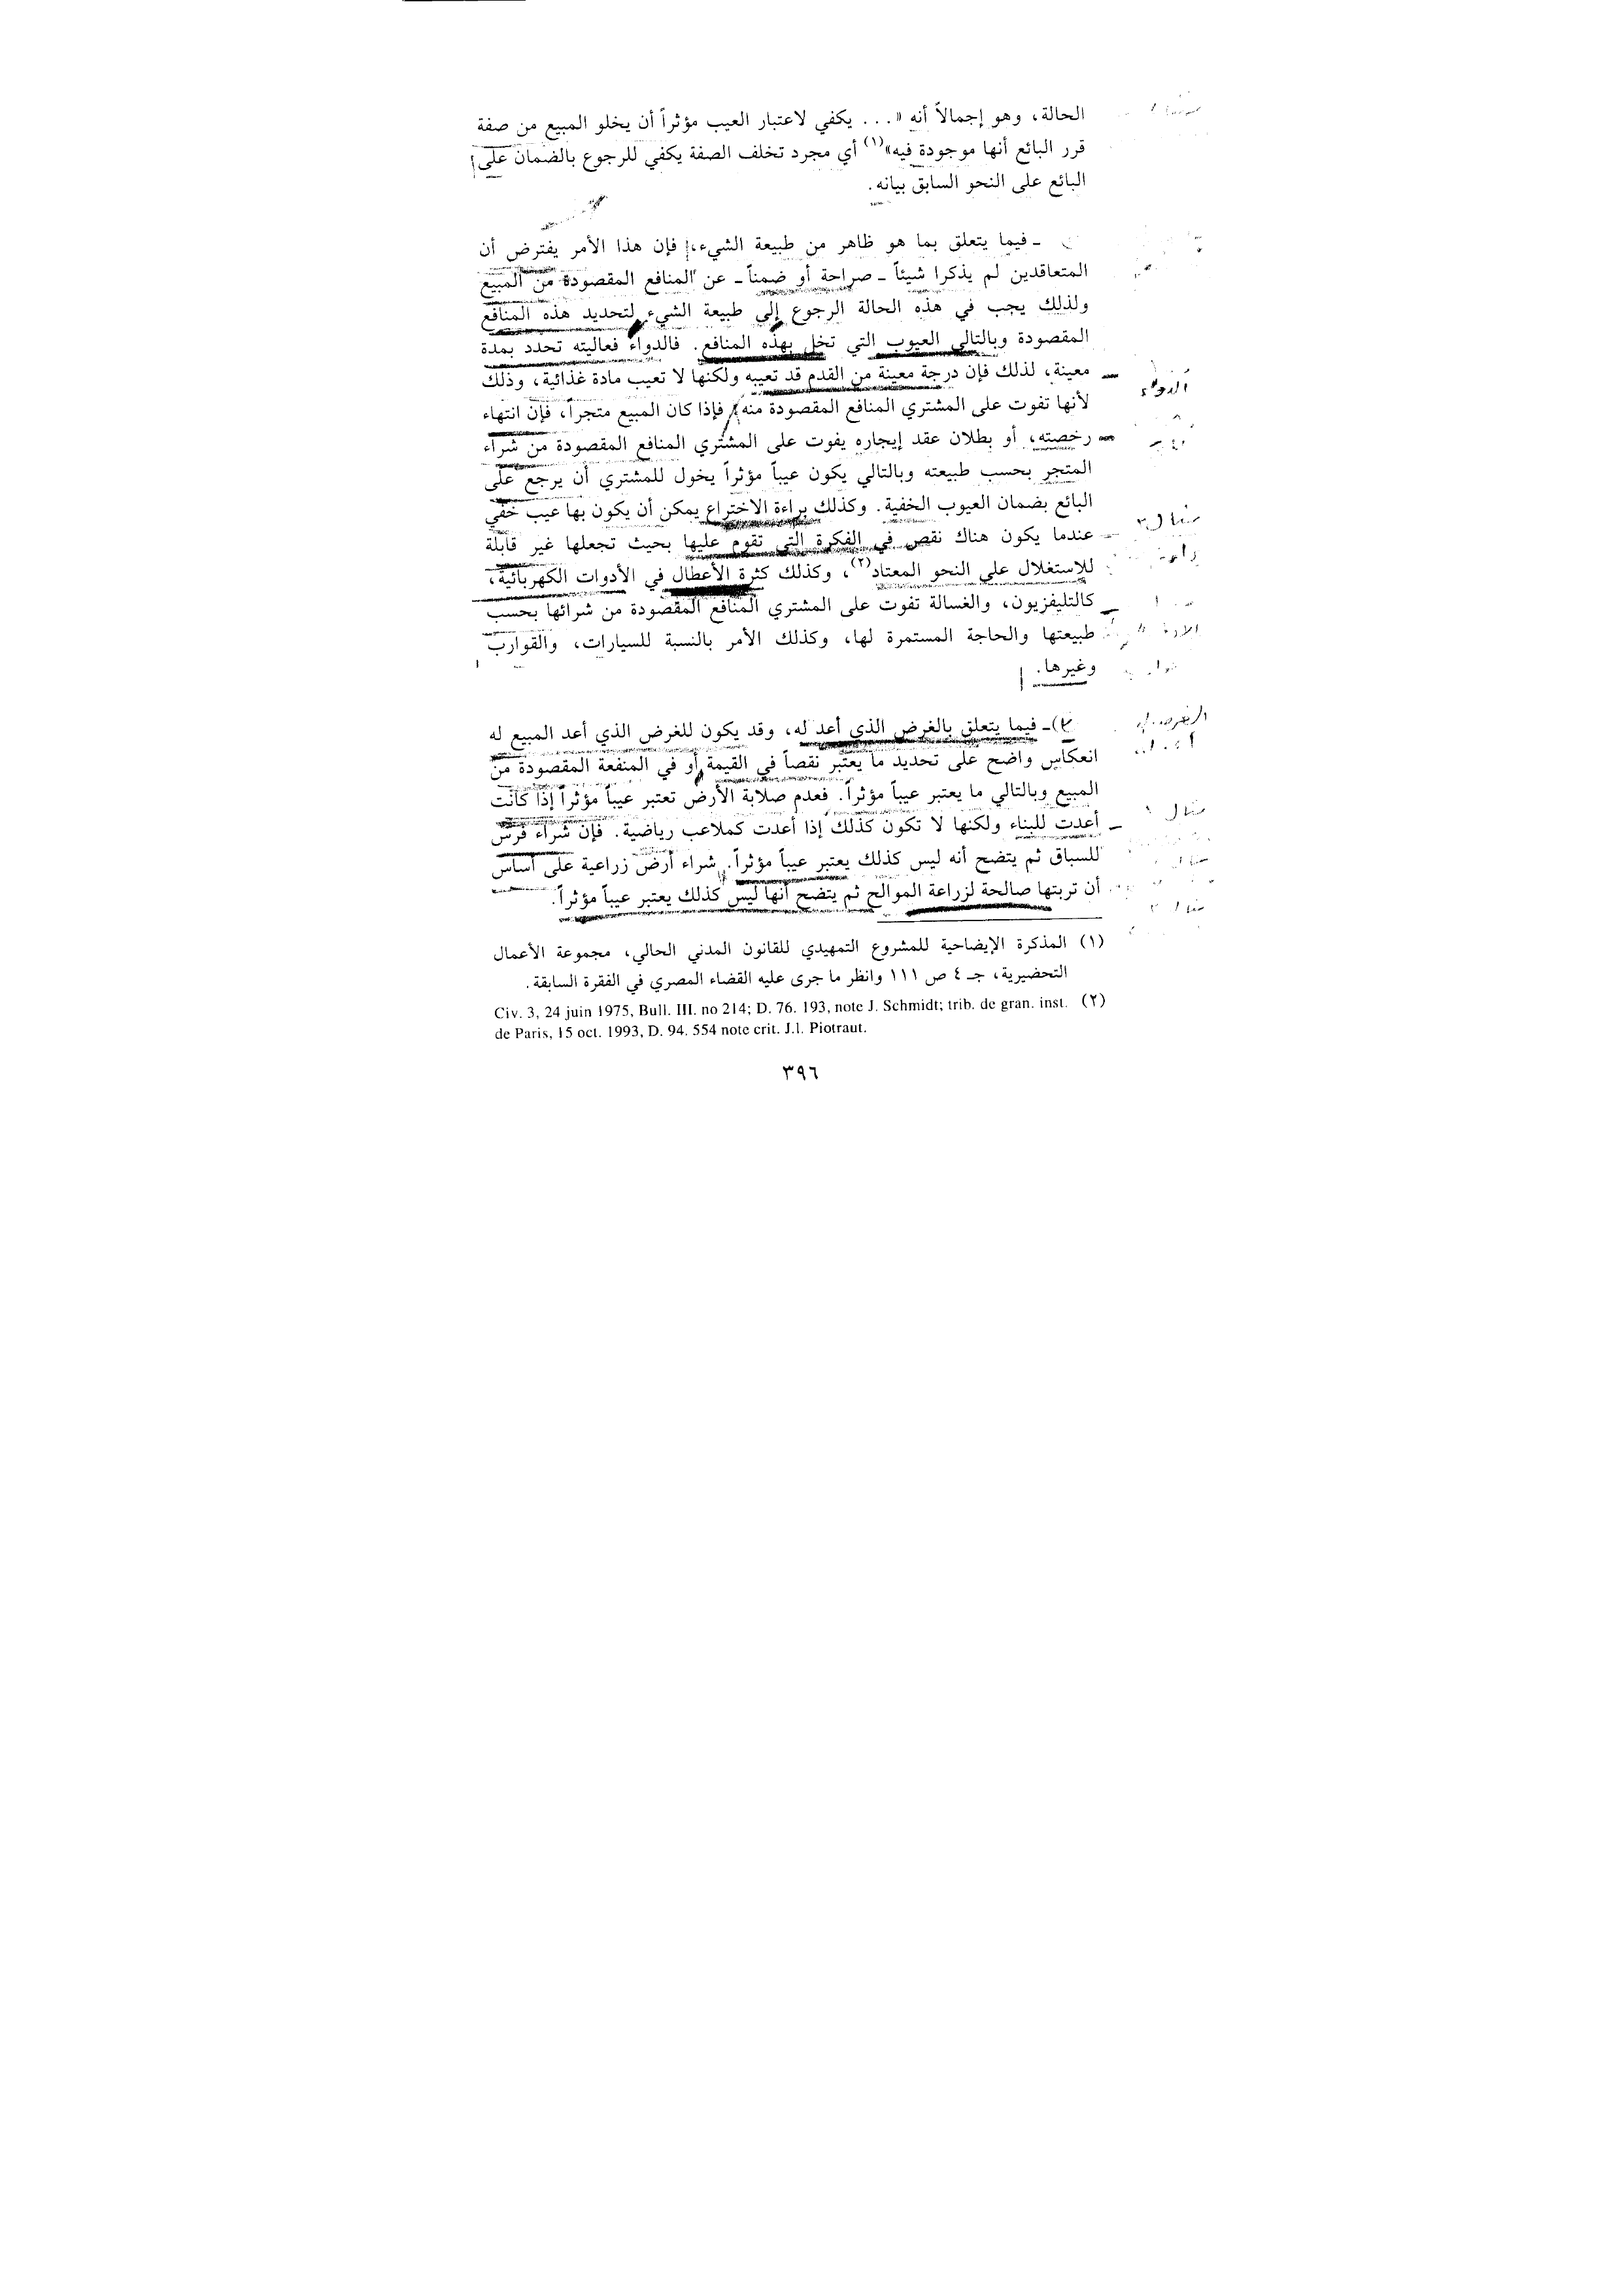 الحالة، وهو إجمالاً أنه «... يكفي لاعتبار العيب مؤثراً أن يخلو المبيع من صفة
قرر البائع أنها موجودة فيه»(١) أي مجرد تخلف الصفة يكفي للرجوع بالضمان على
البائع على النحو السابق بيانه.
ـ فيما يتعلق بما هو ظاهر من طبيعة الشيء، فإن هذا الأمر يفترض أن
المتعاقدين لم يذكرا شيئاً ـ صراحة أو ضمناً ـ عن المنافع المقصودة من المبيع
ولذلك يجب في هذه الحالة الرجوع إلى طبيعة الشيء لتحديد هذه المنافع
المقصودة وبالتالي العيوب التي تخل بهذه المنافع. فالدواء فعاليته تحدد بمدة
معينة، لذلك فإن درجة معينة من القدم قد تعيبه ولكنها لا تعيب مادة غذائية، وذلك
الدواء
لأنها تفوت على المشتري المنافع المقصودة منه، فإذا كان المبيع متجراً، فإن انتهاء
رخصته، أو بطلان عقد إيجاره يفوت على المشتري المنافع المقصودة من شراء
المتجر بحسب طبيعته وبالتالي يكون عيباً مؤثراً يخول للمشتري أن يرجع على
البائع بضمان العيوب الخفية. وكذلك براءة الاختراع يمكن أن يكون بها عيب خفي
مثال ٣
عندما يكون هناك نقص في الفكرة التي تقوم عليها بحيث تجعلها غير قابلة
للإستغلال على النحو المعتاد(٢)، وكذلك كثرة الأعطال في الأدوات الكهربائية،
كالتليفزيون، والغسالة تفوت على المشتري المنافع المقصودة من شرائها بحسب
طبيعتها والحاجة المستمرة لها، وكذلك الأمر بالنسبة للسيارات، والقوارب
وغيرها.
ـ فيما يتعلق بالغرض الذي أعد له، وقد يكون للغرض الذي أعد المبيع له
انعكاس واضح على تحديد ما يعتبر نقصاً في القيمة أو في المنفعة المقصودة من
المبيع وبالتالي ما يعتبر عيباً مؤثراً. فعدم صلابة الأرض تعتبر عيباً مؤثراً إذا كانت
مثال ١
أعدت للبناء ولكنها لا تكون كذلك إذا أعدت كملاعب رياضية. فإن شراء فرس
للسباق ثم يتضح أنه ليس كذلك يعتبر عيباً مؤثراً. شراء أرض زراعية على أساس
أن تربتها صالحة لزراعة الموالح ثم يتضح أنها ليس كذلك يعتبر عيباً مؤثراً.
(١) المذكرة الإيضاحية للمشروع التمهيدي للقانون المدني الحالي، مجموعة الأعمال
التحضيرية، جـ ٤ ص ١١١ وانظر ما جرى عليه القضاء المصري في الفقرة السابقة.
(٢) Civ. 3, 24 juin 1975, Bull. III. no 214; D. 76. 193, note J. Schmidt; trib. de gran. inst.
de Paris, 15 oct. 1993, D. 94. 554 note crit. J.l. Piotraut.
٣٩٦